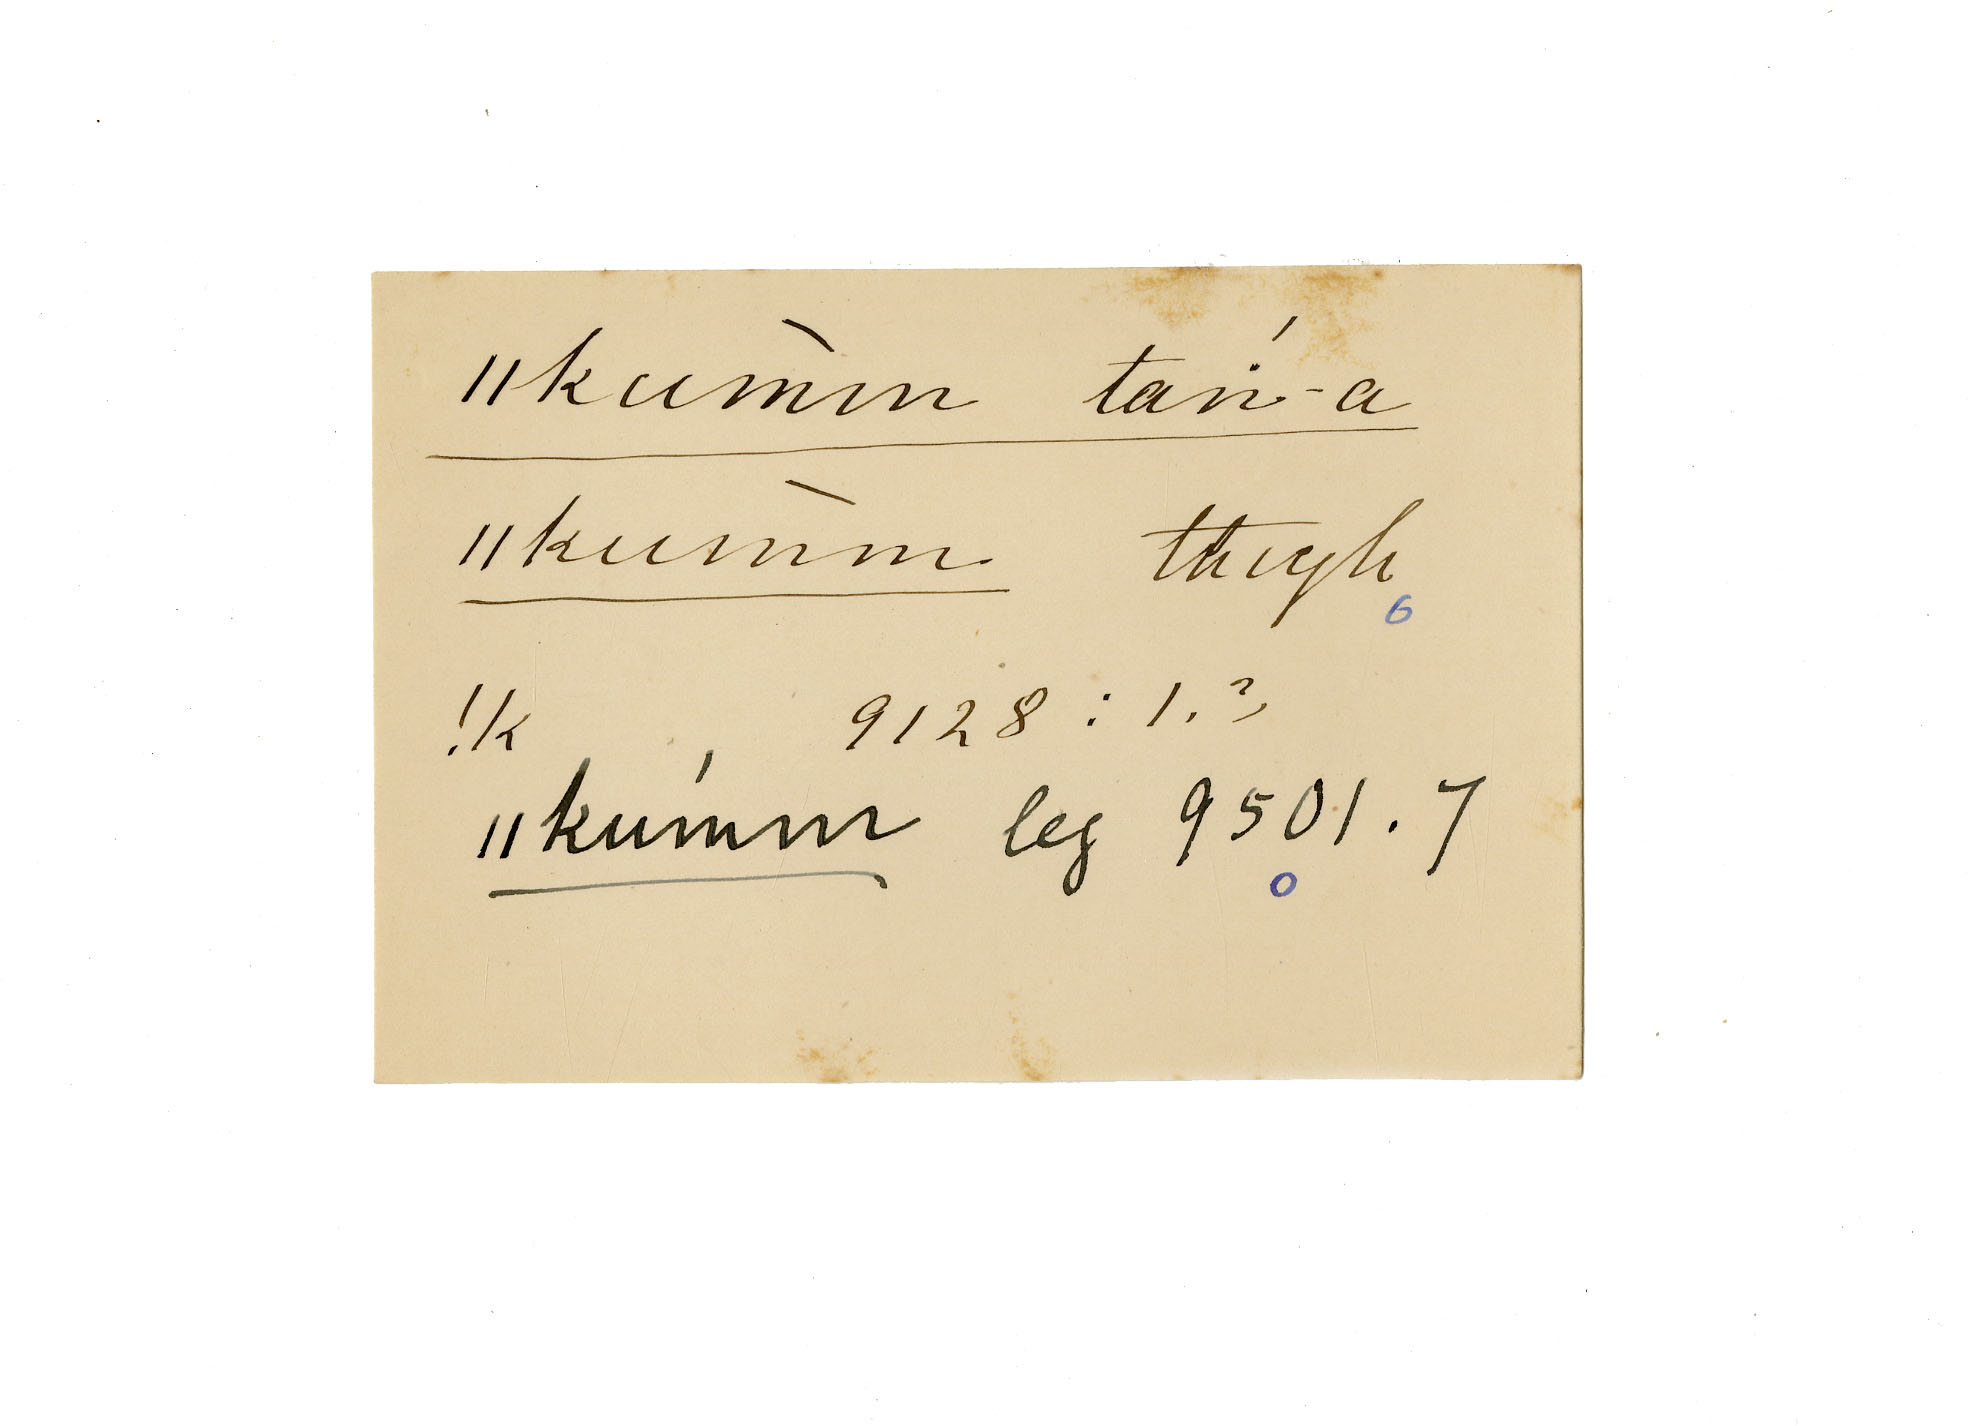 ǁkum̀m taṅ́-a
ǁkum̀m thigh
6
!k 9128 : 1. ?
ǁkuḿm leg 9501.7
o